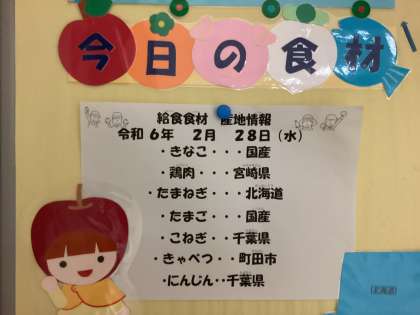 今日の食材
給食食材 産地情報
令和 6年 2月 28日(水)
・きなこ・・・国産
・鶏肉・・・宮崎県
・たまねぎ・・・北海道
・たまご・・・国産
・こねぎ・・・千葉県
・きゃべつ・・・町田市
・にんじん・・千葉県
(北海道)